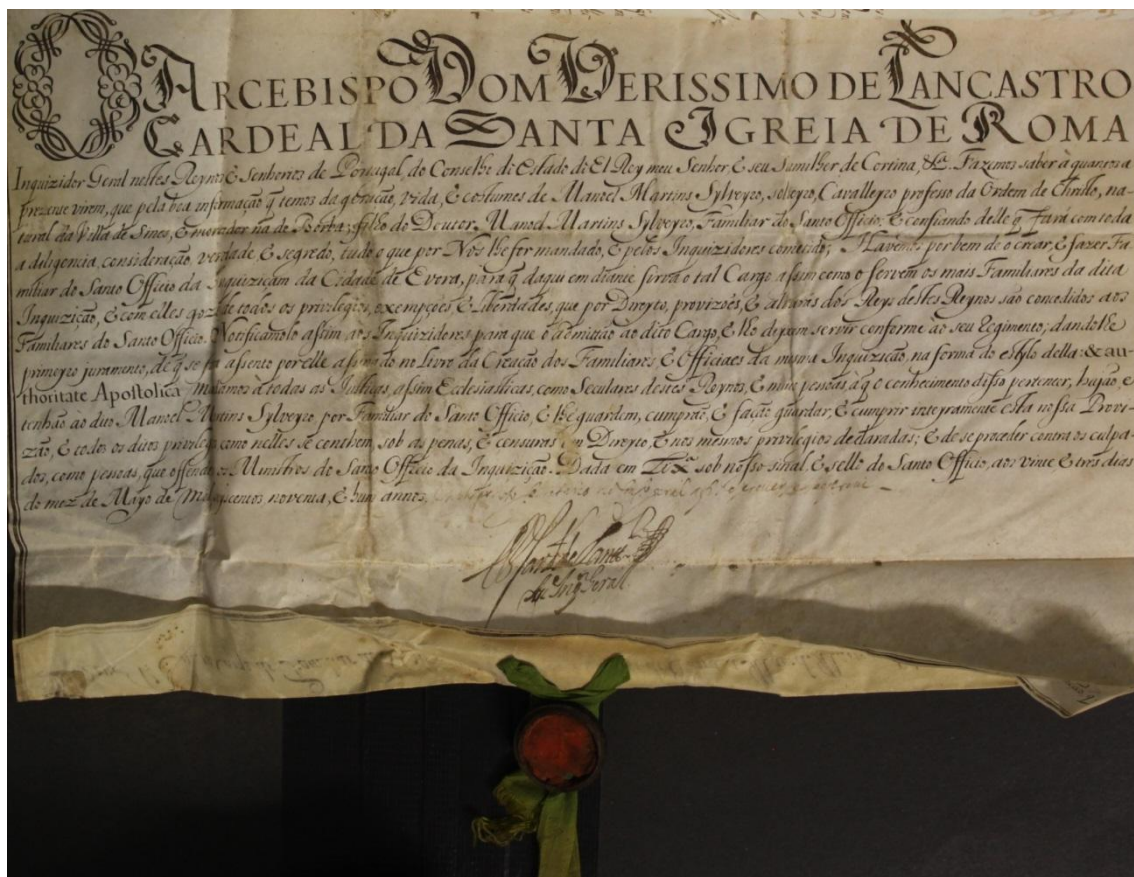 O ARCEBISPO DOM VERISSIMO DE LANCASTRO
CARDEAL DA SANTA IGREIA DE ROMA
Inquizidor Geral nestes Reynos, & Senhorios de Portugal, do Conselho de Estado de El Rey meu Senhor, & seu Sumilher de Cortina, &c. Fazemos saber à quantos a
prezente virem, que pela boa informação q̃ temos da geração, vida, & costumes de Manoel Martins Sylveyro, solteyro, Cavalleyro professo da Ordem de Christo, na-
tural da Villa de Sines, & morador na de Borba; filho do Doutor, Manoel Martins Sylveyro, Familiar do Santo Officio, & confiando delle q̃ fará com toda
a diligencia, consideração, verdade & segredo, tudo o que por Nos lhe for mandado, & pelos Inquizidores cometido; Havemos por bem de o criar, & fazer Fa-
miliar do Santo Officio da Inquiziçam da Cidade de Evora, para q̃ daqui em diante sirva o tal Cargo assim como o servem os mais Familiares da dita
Inquizição, & com elles goze de todos os privilegios, exempções & liberdades, que por Direyto, provizoẽs, & alvarás dos Reys destes Reynos são concedidos aos
Familiares do Santo Officio. Notificamolo assim aos Inquizidores para que o admitão ao dito Cargo, & lho deyxem servir conforme ao seu Regimento; dandolhe
primeyro juramento, de q̃ se fará assento por elle assinado no Livro da Criação dos Familiares, & Officiaes da mesma Inquizição, na forma do estylo della: & au-
thoritate Apostolica mandamos a todas as Justiças, assim Ecclesiasticas, como Seculares destes Reynos, & mais pessoas à q̃ o conhecimento disso pertencer, hajão, e
tenhão ao dito Manoel Martins Sylveyro, por Familiar do Santo Officio, & lhe guardem, cumprão, & fação guardar, & cumprir inteyramente esta nossa Provi-
zão, & todos os ditos privilegios como nelles se contem, sob as penas, & censuras em Direyto, & nos mesmos privilegios declaradas; & de se proceder contra os culpa-
dos, como pessoas, que offendem os Ministros do Santo Officio da Inquizição. Dada em Lix.ª sob nosso sinal, & sello do Santo Officio, aos vinte & tres dias
do mez de Mayo de Mil seiscentos, noventa, & hum annos.